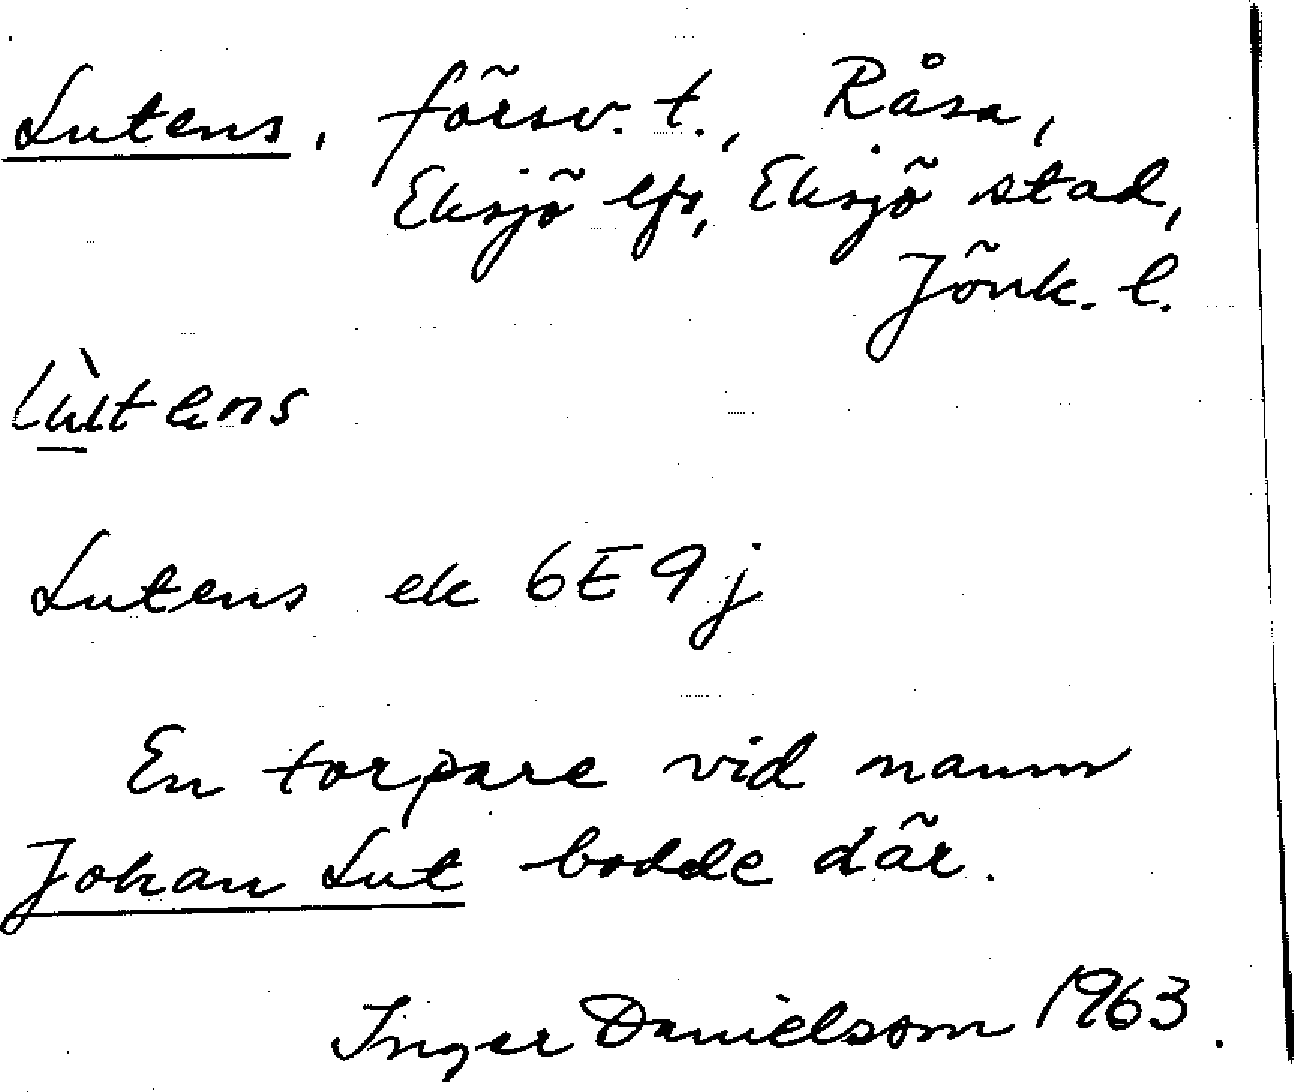 Lutens, försv. t., Råsa,
Eksjö lfs, Eksjö stad,
Jönk. l.
lùtens
Lutens ek 6E9j
En torpare vid namn
Johan Lut bodde där.
Inger Danielsom 1963.